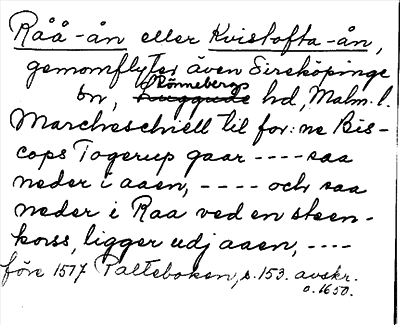 Råå-ån eller Kvistofta-ån,
genomflyter även Sireköpinge
Rönnebergs
sn, Luggude hd, Malm. l.
Marcheschiell til for:ne Bis-
cops Togerup gaar ---- saa
neder i aaen, ---- och saa
neder i Raa ved en steen-
korss, ligger udj aaen, ----
före 1517 Palteboken, s. 153. avskr.
o. 1650.